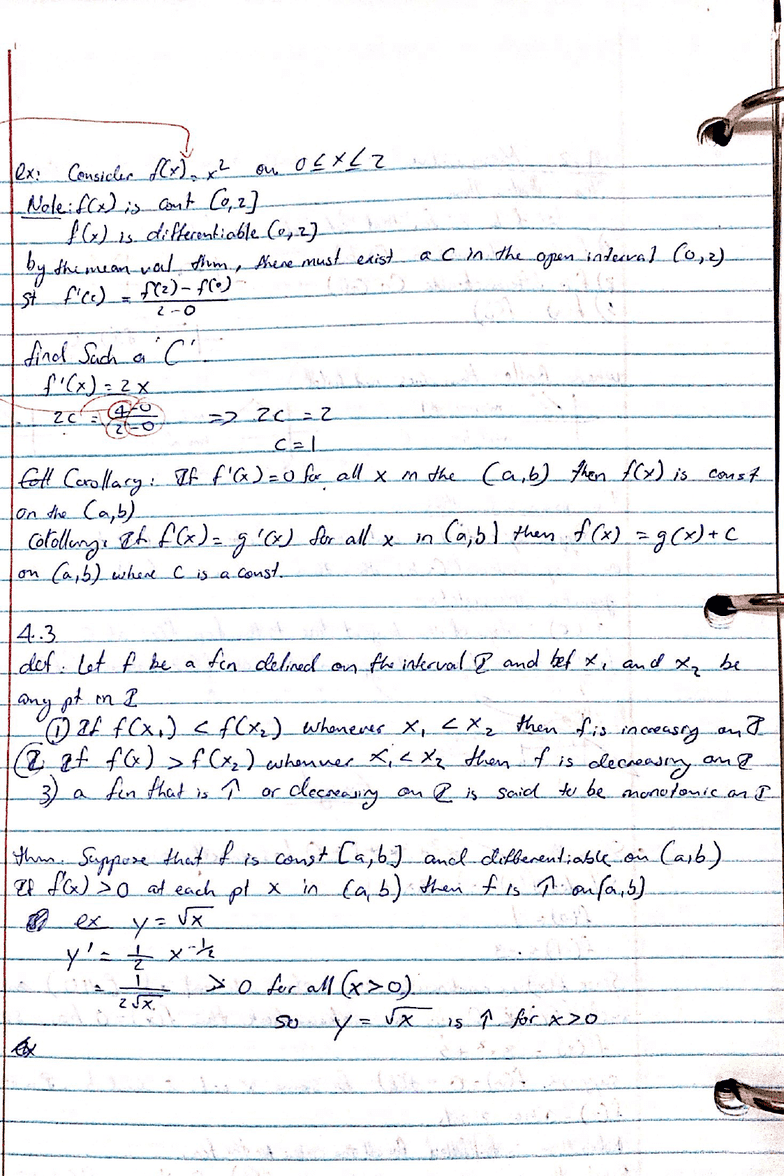 ex: Consider f(x) = x² on 0 ≤ x ≤ 2
Note: f(x) is cont [0,2]
f(x) is differentiable (0,2]
by the mean val thm, there must exist a c in the open interval (0,2)
st f'(c) = f(2)-f(0) / 2-0
find such a 'C'
f'(x) = 2x
2c = 4-0 / 2-0 => 2c = 2
c = 1
Corollary: If f'(x) = 0 for all x in the (a,b) then f(x) is const
on the (a,b)
Corollary: If f(x) = g'(x) for all x in (a,b) then f(x) = g(x) + C
on (a,b) where C is a const.
4.3
def. Let f be a fcn defined on the interval I and let x₁ and x₂ be
any pt in I
① If f(x₁) < f(x₂) whenever x₁ < x₂ then f is increasing on I
② If f(x) > f(x₂) whenever x₁ < x₂ then f is decreasing on I
3) a fcn that is ↑ or decreasing on I is said to be monotonic on I
thm. Suppose that f is const [a,b] and differentiable on (a,b)
If f'(x) > 0 at each pt x in (a,b) then f is ↑ on [a,b)
ex y = √x
y' = 1/2 x^-1/2
= 1 / 2√x > 0 for all (x>0)
so y = √x is ↑ for x>0